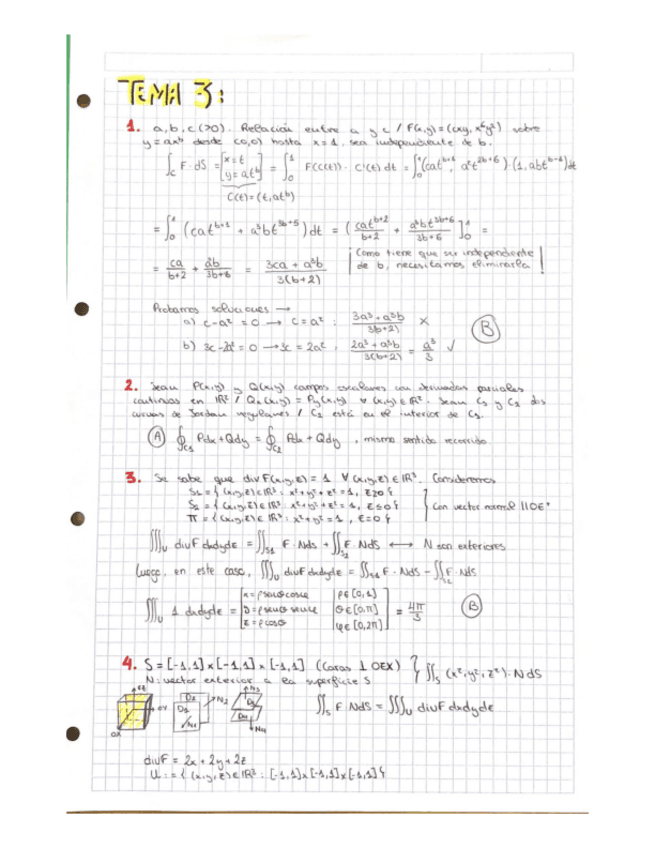 TEMA 3:
1. a, b, c (>0). Relación entre a y c / F(x,y) = (cxy, x⁶y²) sobre
y = axᵇ desde (0,0) hasta x = 1, sea independiente de b.
∫_C F·dS = [x=t y=atᵇ] = ∫₀¹ F(C(t))·C'(t) dt = ∫₀¹ (catᵇ⁺¹, a²t²ᵇ⁺⁶)·(1, abtᵇ⁻¹)dt
C(t) = (t, atᵇ)
= ∫₀¹ (catᵇ⁺¹ + a³bt³ᵇ⁺⁵) dt = ( catᵇ⁺²/b+2 + a³bt³ᵇ⁺⁶/3b+6 ]₀¹ =
= ca/b+2 + a³b/3b+6 = 3ca + a³b/3(b+2) ¡Como tiene que ser independiente
de b, necesitamos eliminarla!
Probamos soluciones →
a) c-a² = 0 → c = a² : 3a³ + a³b/3(b+2) ✗ B
b) 3c - 2a² = 0 → 3c = 2a², 2a³ + a³b/3(b+2) = a³/3 ✓
2. Sean P(x,y) y Q(x,y) campos escalares con derivadas parciales
continuas en ℝ² / Qx(x,y) = Py(x,y) ∀ (x,y) ∈ ℝ². Sean C₁ y C₂ dos
curvas de Jordan regulares / C₂ está en el interior de C₁.
A ∮_C₁ Pdx + Qdy = ∮_C₂ Pdx + Qdy, mismo sentido recorrido
3. Se sabe que div F(x,y,z) = 1 ∀ (x,y,z) ∈ ℝ³. Consideremos
S₁ = { (x,y,z) ∈ ℝ³ : x² + y² + z² = 1, z≥0 }
S₂ = { (x,y,z) ∈ ℝ³ : x² + y² + z² = 1, z≤0 } } Con vector normal ||OZ⁺
π = { (x,y,z) ∈ ℝ³ : x² + y² = 1, z=0 }
∭_U divF dxdydz = ∬_S₁ F·NdS + ∬_S₂ F·NdS ↔ N son exteriores
Luego, en este caso, ∭_U divF dxdydz = ∬_S₁ F·NdS - ∬_S₂ F·NdS
∭_U 1 dxdydz = [x = ρsenθcosφ y = ρsenθsenφ z = ρcosθ | ρ∈[0,1] θ∈[0,π] φ∈[0,2π]] = 4π/3 B
4. S = [-1,1] x [-1,1] x [-1,1] (Caras ⊥ OEX) } ∬_S (x²,y²,z²)·NdS
N: vector exterior a la superficie S
OZ OY OX D₂ D₁ N₂ N₁ N₃ D₃ D₄ N₄
∬_S F·NdS = ∭_U divF dxdydz
divF = 2x + 2y + 2z
U := { (x,y,z) ∈ ℝ³ : [-1,1]x[-1,1]x[-1,1] }